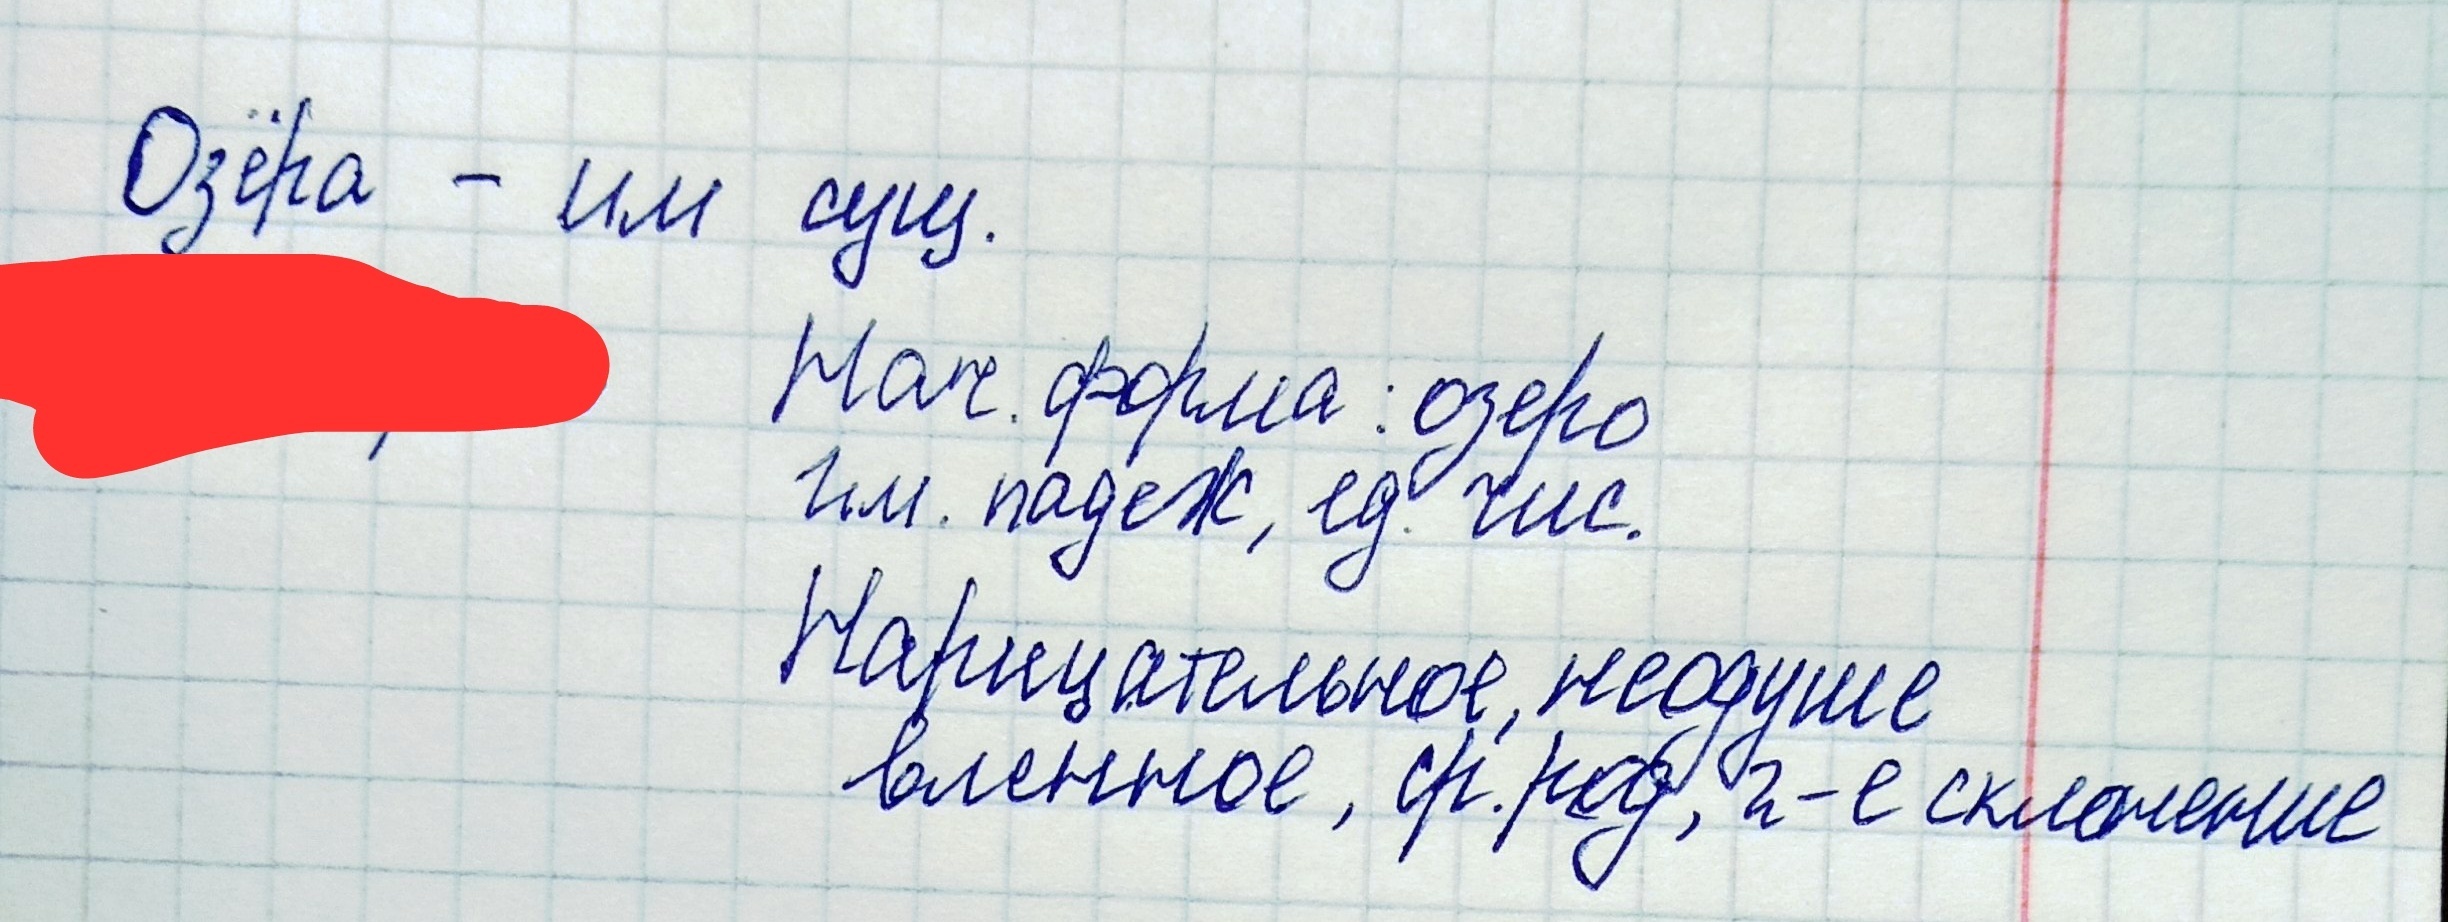 Озёра - им сущ.
Нач. форма: озеро
Им. падеж, ед. чис.
Нарицательное, неодуше
вленное, ср. род, 2-е склонение